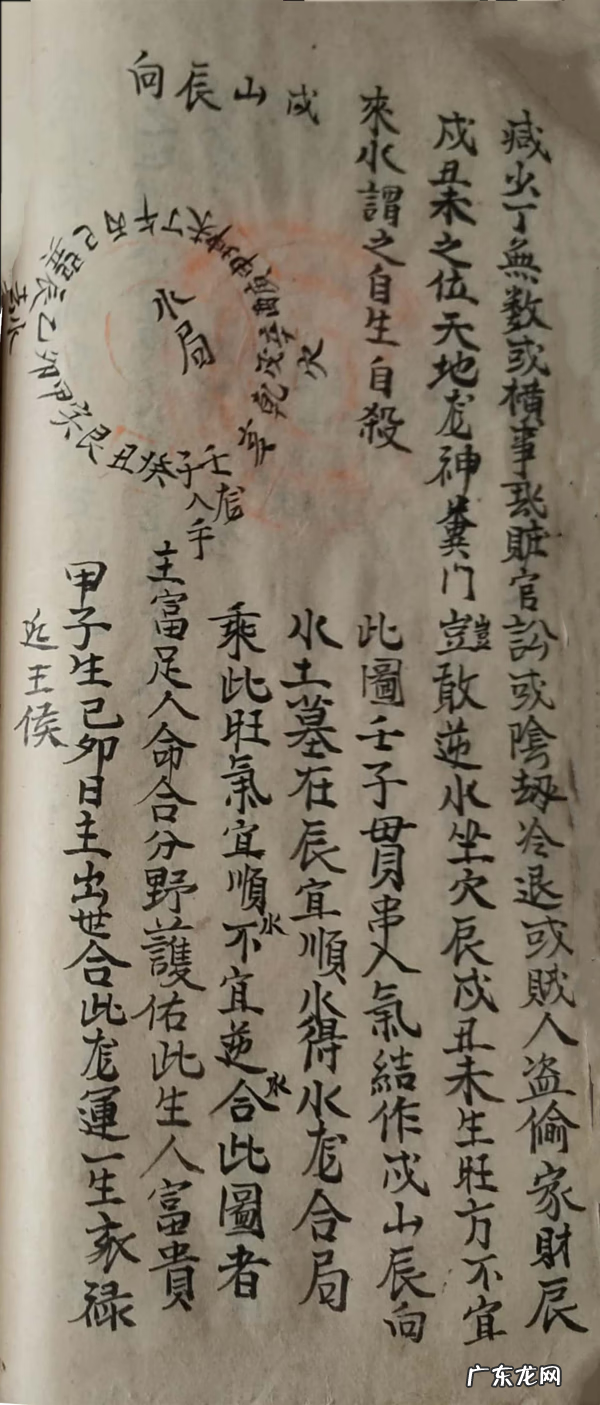 減少丁無数或橫事耗賍官訟或陰刼冷退或賊人盗偷家財辰
戍丑未之位天地龙神糞门豈敢逆水坐穴辰戍丑未生旺方不宜
來水謂之自生自殺
此圖壬子毌貫串入氣結作戍山辰向
水土墓在辰宜順水得水龙合局
乘此旺氣宜順水不宜逆水合此圖者
主富足人命合分野護佑此生人富貴
甲子生己夘日主出世合此龙運一生衣禄
近王侯
戍山辰向
水局
壬子癸丑艮寅甲夘乙辰巽巳丙午丁未坤申庚酉辛戍乾亥
龙入手
穴
去水
广东龙网